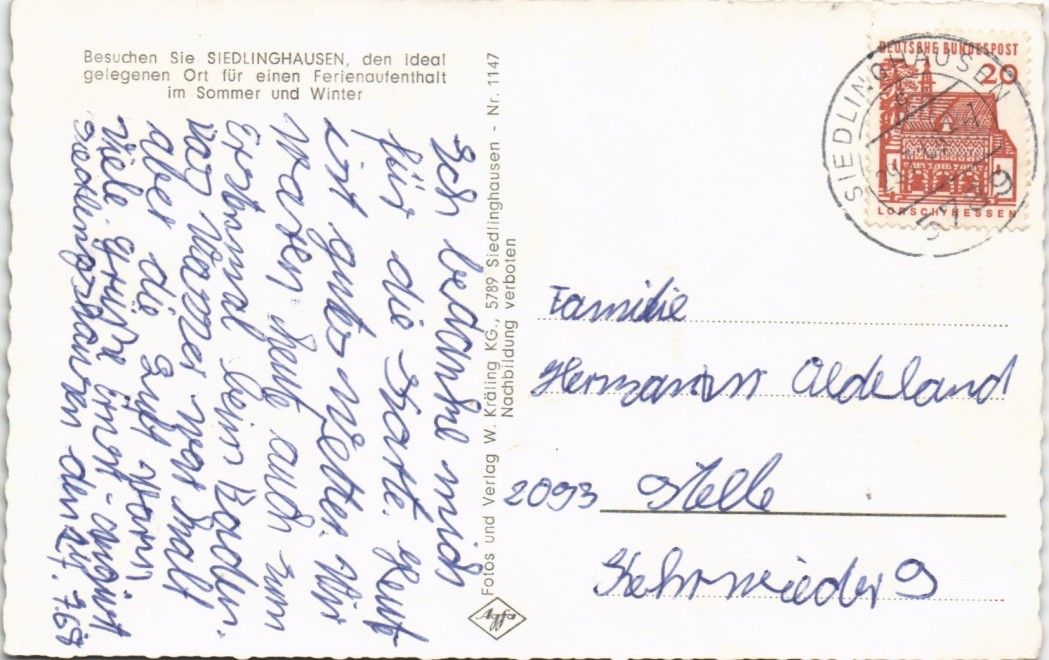 Besuchen Sie SIEDLINGHAUSEN, den ideal
gelegenen Ort für einen Ferienaufenthalt
im Sommer und Winter
Ich bedanke mich
für die Karte. Heute
ist gutes Wetter. Wir
waren heute auch zum
Erstenmal beim Baden.
Das Wasser war kalt
aber die Luft warm
viele Grüße
Siedlinghausen den 27.7.67
Fotos und Verlag W. Kräling KG., 5789 Siedlinghausen - Nr. 1147
Nachbildung verboten
Agfa
DEUTSCHE BUNDESPOST
20
LORSCH/HESSEN
SIEDLINGHAUSEN
5789
Familie
Hermann Aldeland
2093 Stelle
Kehrwieder 9